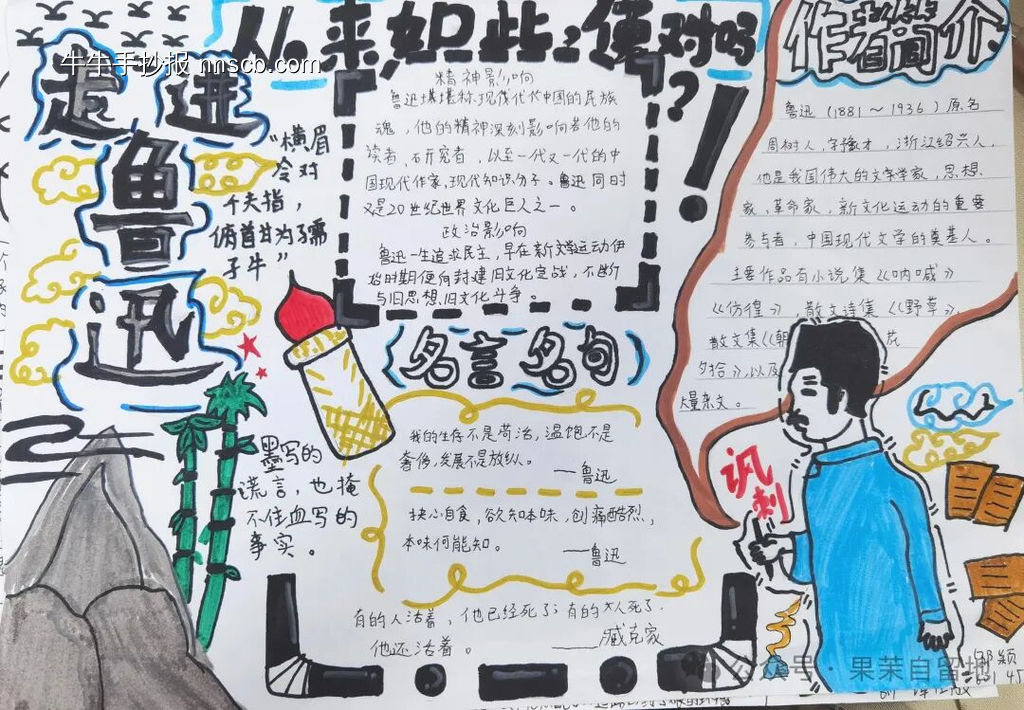 从来如此,便对吗?!
牛牛手抄报 nnscb.com
走进
鲁迅
“横眉
冷对
千夫指，
俯首甘为孺
子牛”
精神影响
鲁迅堪堪称现代代中国的民族
魂，他的精神深刻影响着他的
读者、研究者，以至一代又一代的中
国现代作家,现代知识分子。鲁迅同时
又是20世纪世界文化巨人之一。
政治影响
鲁迅一生追求民主，早在新文学运动伊
始时期便向封建旧文化宣战，不断
与旧思想、旧文化斗争。
作者简介
鲁迅（1881～1936）原名
周树人，字豫才，浙江绍兴人，
他是我国伟大的文学家，思想
家、革命家，新文化运动的重要
参与者，中国现代文学的奠基人。
主要作品有小说集《呐喊》
《彷徨》，散文诗集《野草》，
散文集《朝花
夕拾》,以及
大量杂文。
名言名句
我的生存不是苟活，温饱不是
奢侈，发展不是放纵。
——鲁迅
抉心自食，欲知本味，创痛酷烈，
本味何能知。
——鲁迅
有的人活着，他已经死了；有的人死了.
他还活着。
——臧克家
墨写的
谎言，也掩
不住血写的
事实。
讽刺
公众号·果茉自留地